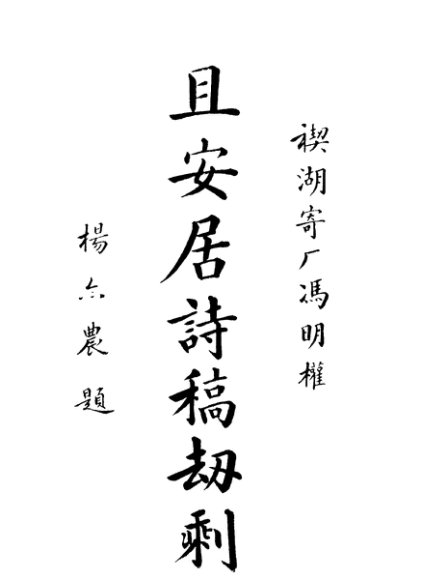 禊湖寄厂馮明權
且安居詩稿刼剩
楊𠆭農題